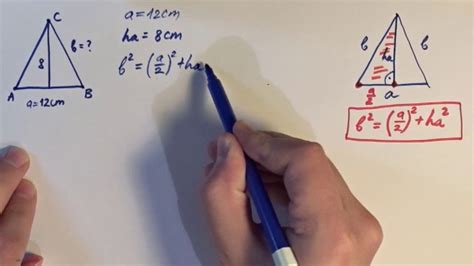 C
b = ?
8
A
B
a = 12cm
a = 12cm
ha = 8cm
b² = (a/2)² + ha
b
b
ha
a/2
a
b² = (a/2)² + ha²